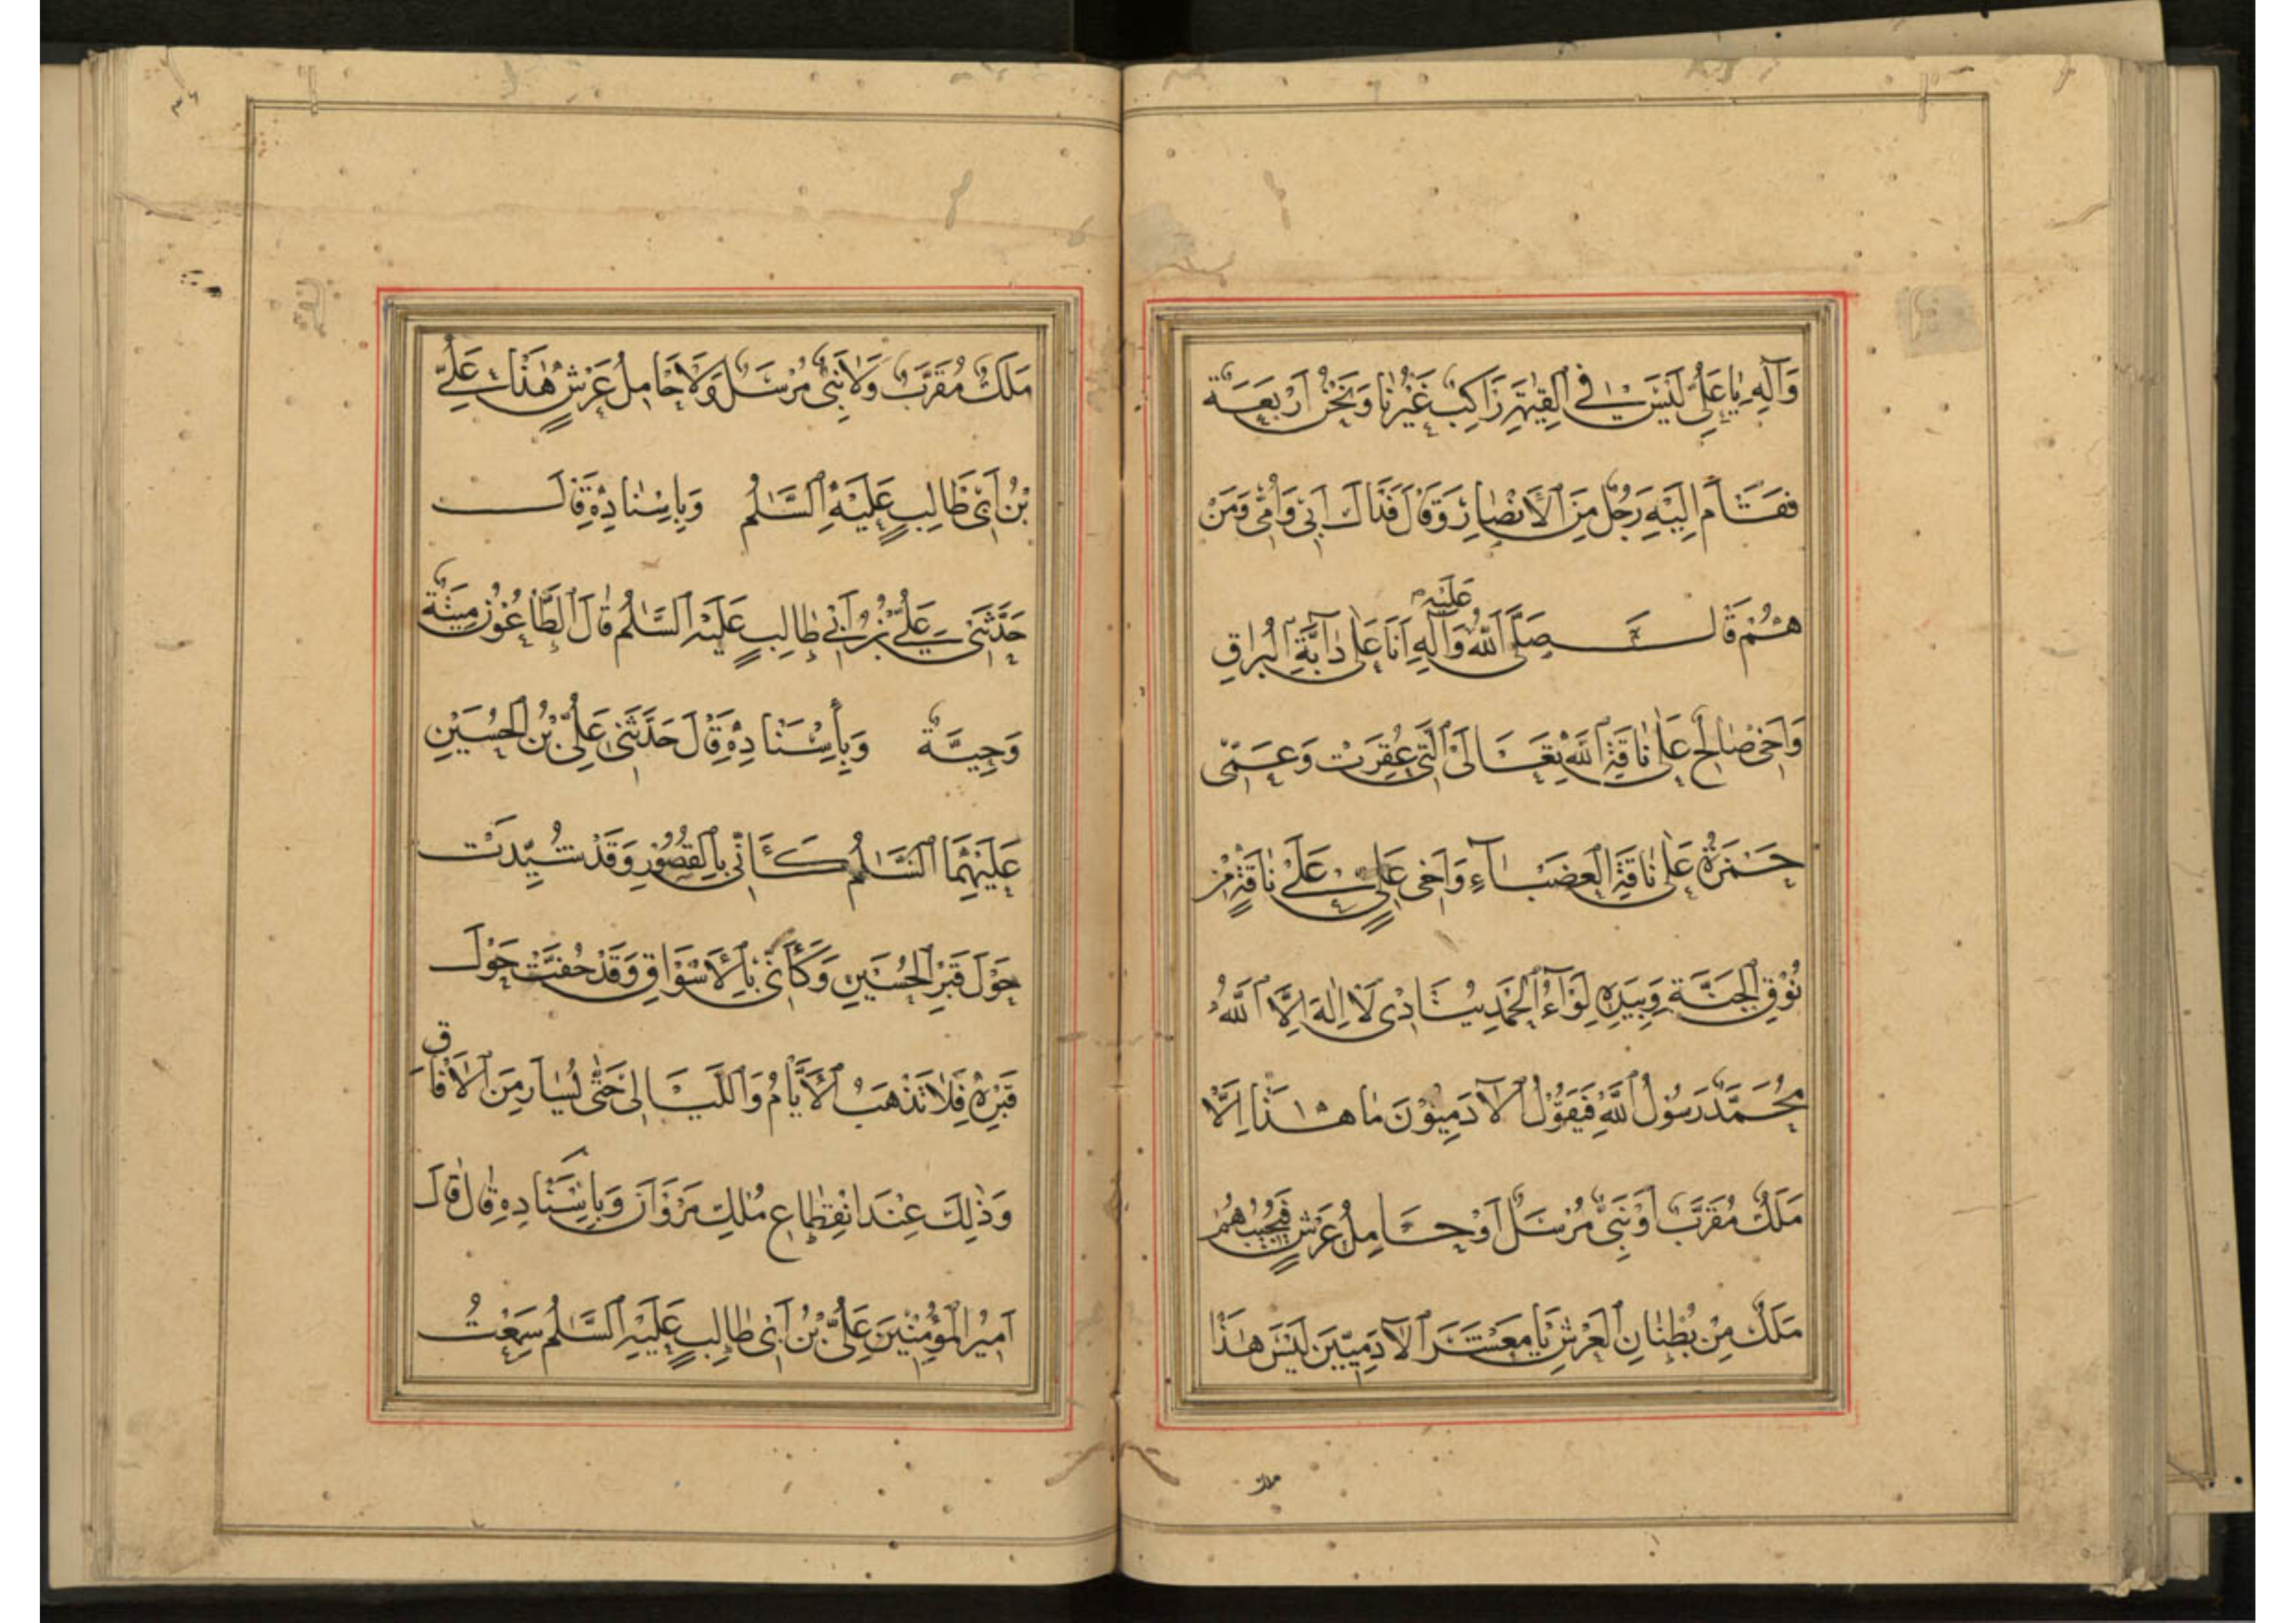 وَآلِهِ يَا عَلِيُّ لَيْسَ فِي الْقِيٰمَةِ رَاكِبٌ غَيْرُنَا وَنَحْنُ اَرْبَعَةٌ
فَقَامَ اِلَيْهِ رَجُلٌ مِنَ الْأَنْصَارِ وَقَالَ فَدَاكَ اَبِي وَاُمِّي وَمَنْ
هُمْ قَالَ صَلَّى اللّٰهُ عَلَيْهِ وَآلِهِ اَنَا عَلٰى دَآبَّةِ الْبُرَاقِ
وَاَخِي صَالِحٌ عَلٰى نَاقَةِ اللّٰهِ تَعَالَى الَّتِي عُقِرَتْ وَعَمِّي
حَمْزَةُ عَلٰى نَاقَةِ الْعَضْبَآءِ وَاَخِي عَلِيٍّ عَلٰى نَاقَةٍ مِنْ
نُوْقِ الْجَنَّةِ وَبِيَدِهِ لِوَآءُ الْحَمْدِ يُنَادِي لَا اِلٰهَ اِلَّا اللّٰهُ
مُحَمَّدٌ رَسُولُ اللّٰهِ فَيَقُوْلُ الْآدَمِيُّوْنَ مَا هٰذَا اِلَّا
مَلَكٌ مُقَرَّبٌ اَوْ نَبِيٌّ مُرْسَلٌ اَوْ حَامِلُ عَرْشٍ فَيُجِيْبُهُمْ
مَلَكٌ مِنْ بُطْنَانِ الْعَرْشِ يَا مَعْشَرَ الْآدَمِيِّينَ لَيْسَ هٰذَا
ملك
مَلَكٌ مُقَرَّبٌ وَلَا نَبِيٌّ مُرْسَلٌ وَلَا حَامِلُ عَرْشٍ هٰذَا عَلِيُّ
بْنُ اَبِي طَالِبٍ عَلَيْهِ السَّلٰمُ وَبِاِسْنَادِهِ قَالَ
حَدَّثَنِي عَلِيُّ بْنُ اَبِي طَالِبٍ عَلَيْهِ السَّلٰمُ قَالَ الطَّاعُوْنُ مِيتَةٌ
وَحِيَّةٌ وَبِأِسْنَادِهِ قَالَ حَدَّثَنِي عَلِيُّ بْنُ الْحُسَيْنِ
عَلَيْهِمَا السَّلٰمُ كَأَنِّي بِالْقُصُوْرِ وَقَدْ شُيِّدَتْ
حَوْلَ قَبْرِ الْحُسَيْنِ وَكَأَنِّي بِالْأَسْوَاقِ وَقَدْ حُفَّتْ حَوْلَ
قَبْرِهِ فَلَا تَذْهَبُ الْأَيَّامُ وَاللَّيَالِي حَتّٰى يُسَارَ مِنَ الْآفَاقِ
وَذٰلِكَ عِنْدَ انْقِطَاعِ مُلْكِ مَرْوَانَ وَبِاِسْنَادِهِ قَالَ قَالَ
اَمِيْرُ الْمُؤْمِنِيْنَ عَلِيُّ بْنُ اَبِي طَالِبٍ عَلَيْهِ السَّلٰمُ سَمِعْتُ